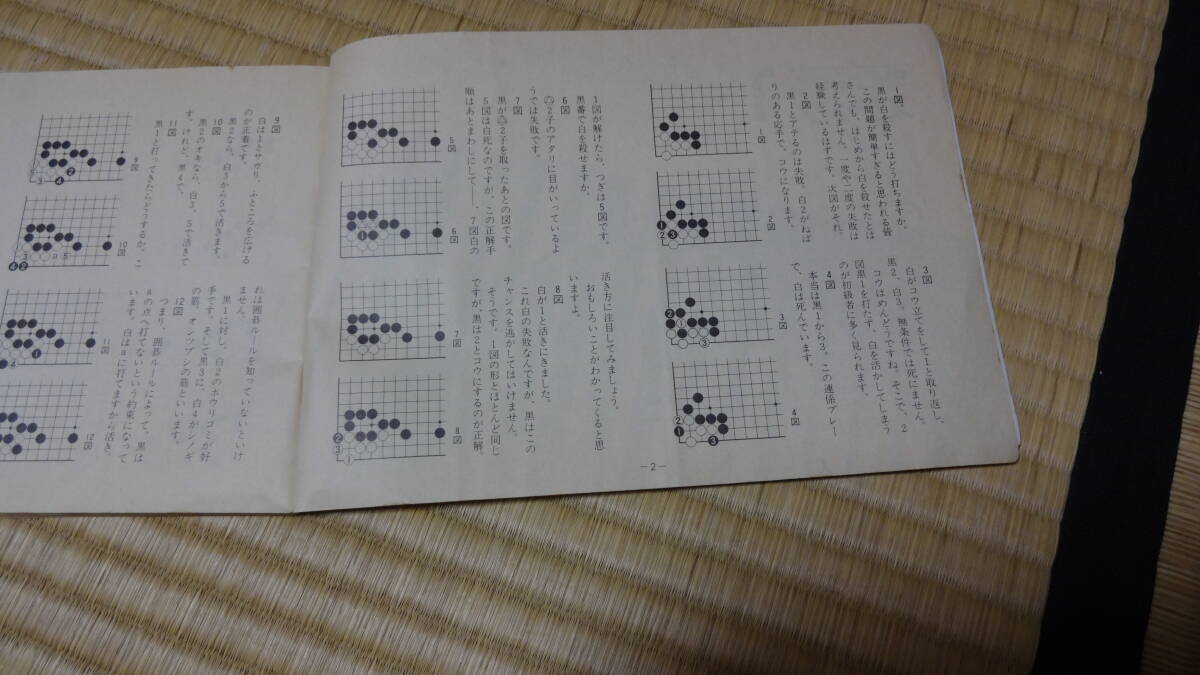 1図
黒が白を殺すにはどう打ちますか。
この問題が簡単すぎると思われる皆
さんでも、はじめから白を殺せたとは
考えられません。一度や二度の失敗は
経験しているはずです。次図がそれ。
2図
黒1とアテるのは失敗、白2がねば
りのある応手で、コウになります。
3図
白がコウ立てをして1と取り返し、
黒2、白3、無条件では死にません。
コウはめんどうですね。そこで、2
図黒1を打たず、白を活かしてしまう
のが初級者に多く見られます。
4図
本当は黒1から3、この連係プレー
で、白は死んでいます。
1図
2図
3図
4図
1図が解けたら、つぎは5図です。
黒番で白を殺せますか。
6図
△2子のアタリに目がいっているよ
うでは失敗です。
7図
黒が△2子を取ったあとの図です。
5図は白死なのですが、この正解手
順はあとまわしにして――、7図白の
活き方に注目してみましょう。
おもしろいことがわかってくると思
いますよ。
8図
白が1と活きにきました。
これ白の失敗なんですが、黒はこの
チャンスを逃がしてはいけません。
そうです。1図の形とほとんど同じ
ですが、黒は2とコウにするのが正解。
5図
6図
7図
8図
―2―
9図
白は1とサガリ、ふところを広げる
のが正着です。
黒2なら、白3から5で活きます。
10図
黒2のオキなら、白3、5で活きて
す。けれど、黒4で、
11図
黒1と打ってきたらどうするか。こ
れは囲碁ルールを知っていないといけ
ません。
黒1に対し、白2のホウリコミが好
手です。そして黒3に、白4がシノギ
の筋。オシツブシの筋といいます。
12図
つまり、囲碁ルールによって、黒は
aの点へ打てないという約束になって
います。白はaに打てますから活き。
9図
10図
11図
12図